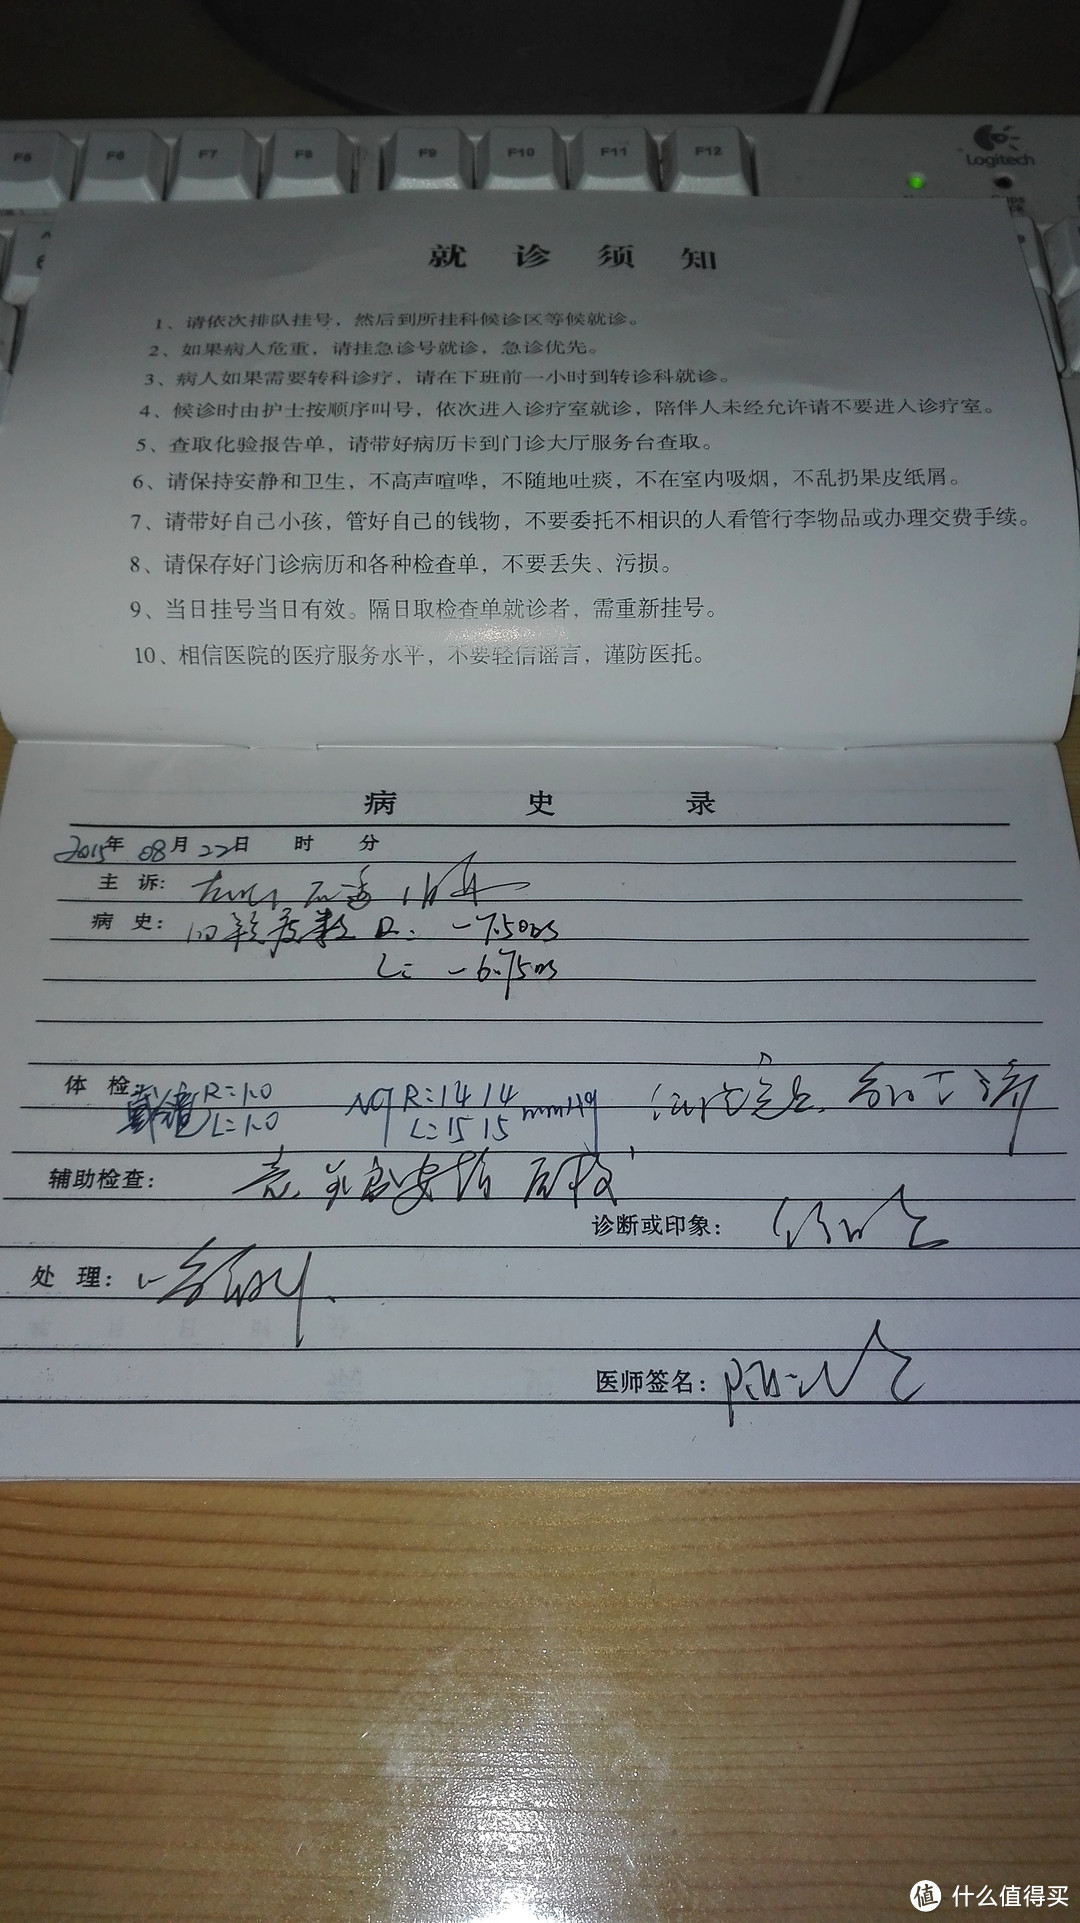 F5 F6 F7 F8 F9 F10 F11 F12
Logitech
就诊须知
1、请依次排队挂号，然后到所挂科候诊区等候就诊。
2、如果病人危重，请挂急诊号就诊，急诊优先。
3、病人如果需要转科诊疗，请在下班前一小时到转诊科就诊。
4、候诊时由护士按顺序叫号，依次进入诊疗室就诊，陪伴人未经允许请不要进入诊疗室。
5、查取化验报告单，请带好病历卡到门诊大厅服务台查取。
6、请保持安静和卫生，不高声喧哗，不随地吐痰，不在室内吸烟，不乱扔果皮纸屑。
7、请带好自己小孩，管好自己的钱物，不要委托不相识的人看管行李物品或办理交费手续。
8、请保存好门诊病历和各种检查单，不要丢失、污损。
9、当日挂号当日有效。隔日取检查单就诊者，需重新挂号。
10、相信医院的医疗服务水平，不要轻信谣言，谨防医托。
病史录
2015年 08月 22日 时 分
主诉：
病史： 度数 R： -7.50DS
L： -6.75DS
体检： 戴镜 R：1.0 NCT R：14 14 mmHg
L：1.0 L：15 15
辅助检查：
诊断或印象：
处理：
医师签名：
值 什么值得买